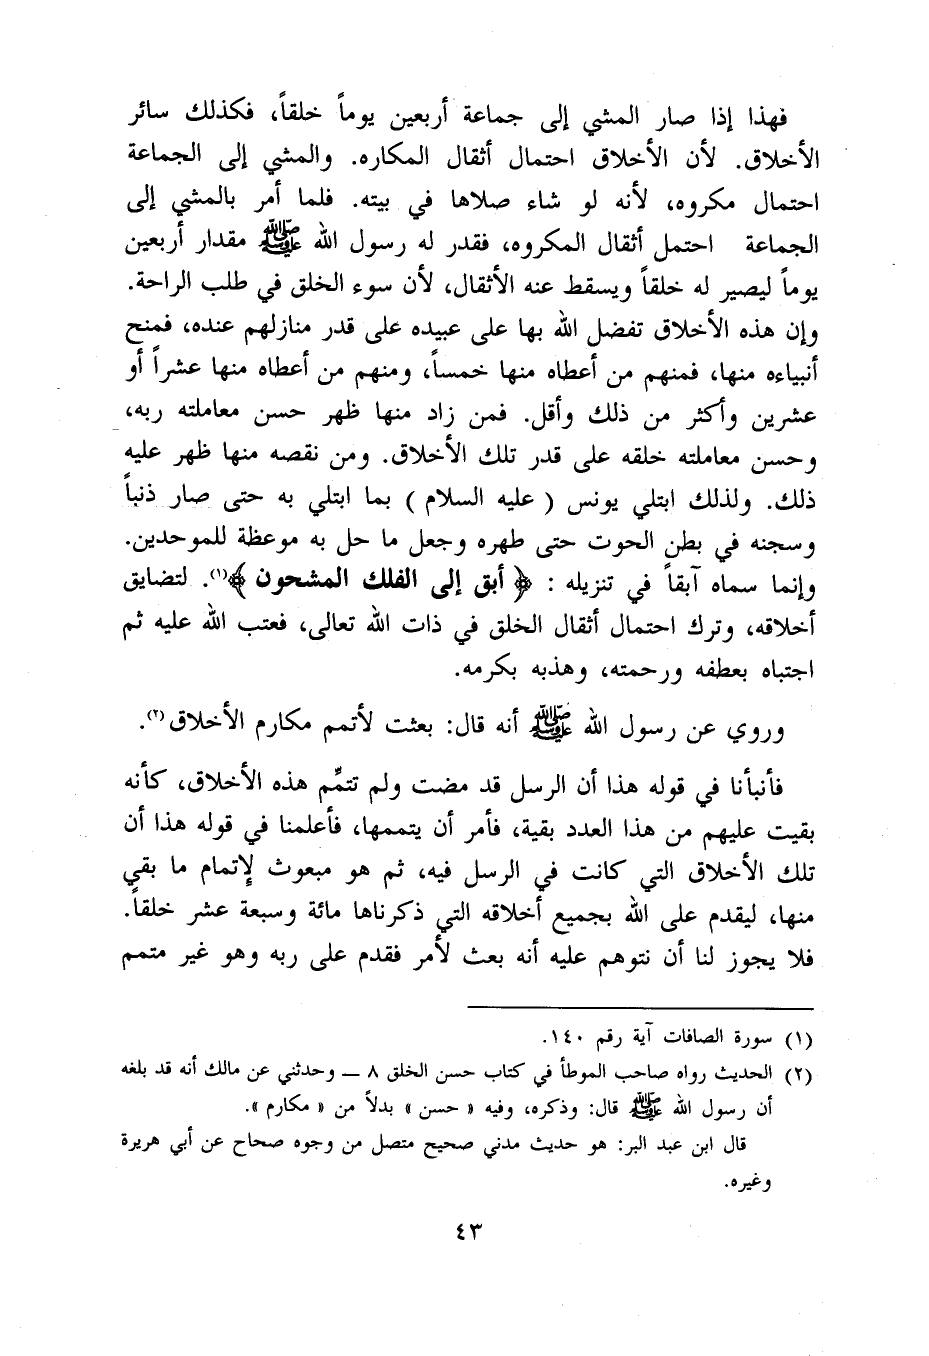 فهذا إذا صار المشي إلى جماعة أربعين يوماً خلقاً، فكذلك سائر
الأخلاق. لأن الأخلاق احتمال أثقال المكاره. والمشي إلى الجماعة
احتمال مكروه، لأنه لو شاء صلاها في بيته. فلما أمر بالمشي إلى
الجماعة احتمل أثقال المكروه، فقدر له رسول الله ﷺ مقدار أربعين
يوماً ليصير له خلقاً ويسقط عنه الأثقال، لأن سوء الخلق في طلب الراحة.
وإن هذه الأخلاق تفضل الله بها على عبيده على قدر منازلهم عنده، فمنح
أنبياءه منها، فمنهم من أعطاه منها خمساً، ومنهم من أعطاه منها عشراً أو
عشرين وأكثر من ذلك وأقل. فمن زاد منها ظهر حسن معاملته ربه،
وحسن معاملته خلقه على قدر تلك الأخلاق. ومن نقصه منها ظهر عليه
ذلك. ولذلك ابتلي يونس ( عليه السلام ) بما ابتلي به حتى صار ذنباً
وسجنه في بطن الحوت حتى طهره وجعل ما حل به موعظة للموحدين.
وإنما سماه آبقاً في تنزيله : ﴿ أبق إلى الفلك المشحون ﴾(١). لتضايق
أخلاقه، وترك احتمال أثقال الخلق في ذات الله تعالى، فعتب الله عليه ثم
اجتباه بعطفه ورحمته، وهذبه بكرمه.
وروي عن رسول الله ﷺ أنه قال: بعثت لأتمم مكارم الأخلاق(٢).
فأنبأنا في قوله هذا أن الرسل قد مضت ولم تتمِّم هذه الأخلاق، كأنه
بقيت عليهم من هذا العدد بقية، فأمر أن يتممها، فأعلمنا في قوله هذا أن
تلك الأخلاق التي كانت في الرسل فيه، ثم هو مبعوث لإتمام ما بقي
منها، ليقدم على الله بجميع أخلاقه التي ذكرناها مائة وسبعة عشر خلقاً.
فلا يجوز لنا أن نتوهم عليه أنه بعث لأمر فقدم على ربه وهو غير متمم
(١) سورة الصافات آية رقم ١٤٠.
(٢) الحديث رواه صاحب الموطأ في كتاب حسن الخلق ٨ ــ وحدثني عن مالك أنه قد بلغه
أن رسول الله ﷺ قال: وذكره، وفيه « حسن » بدلاً من « مكارم ».
قال ابن عبد البر: هو حديث مدني صحيح متصل من وجوه صحاح عن أبي هريرة
وغيره.
٤٣